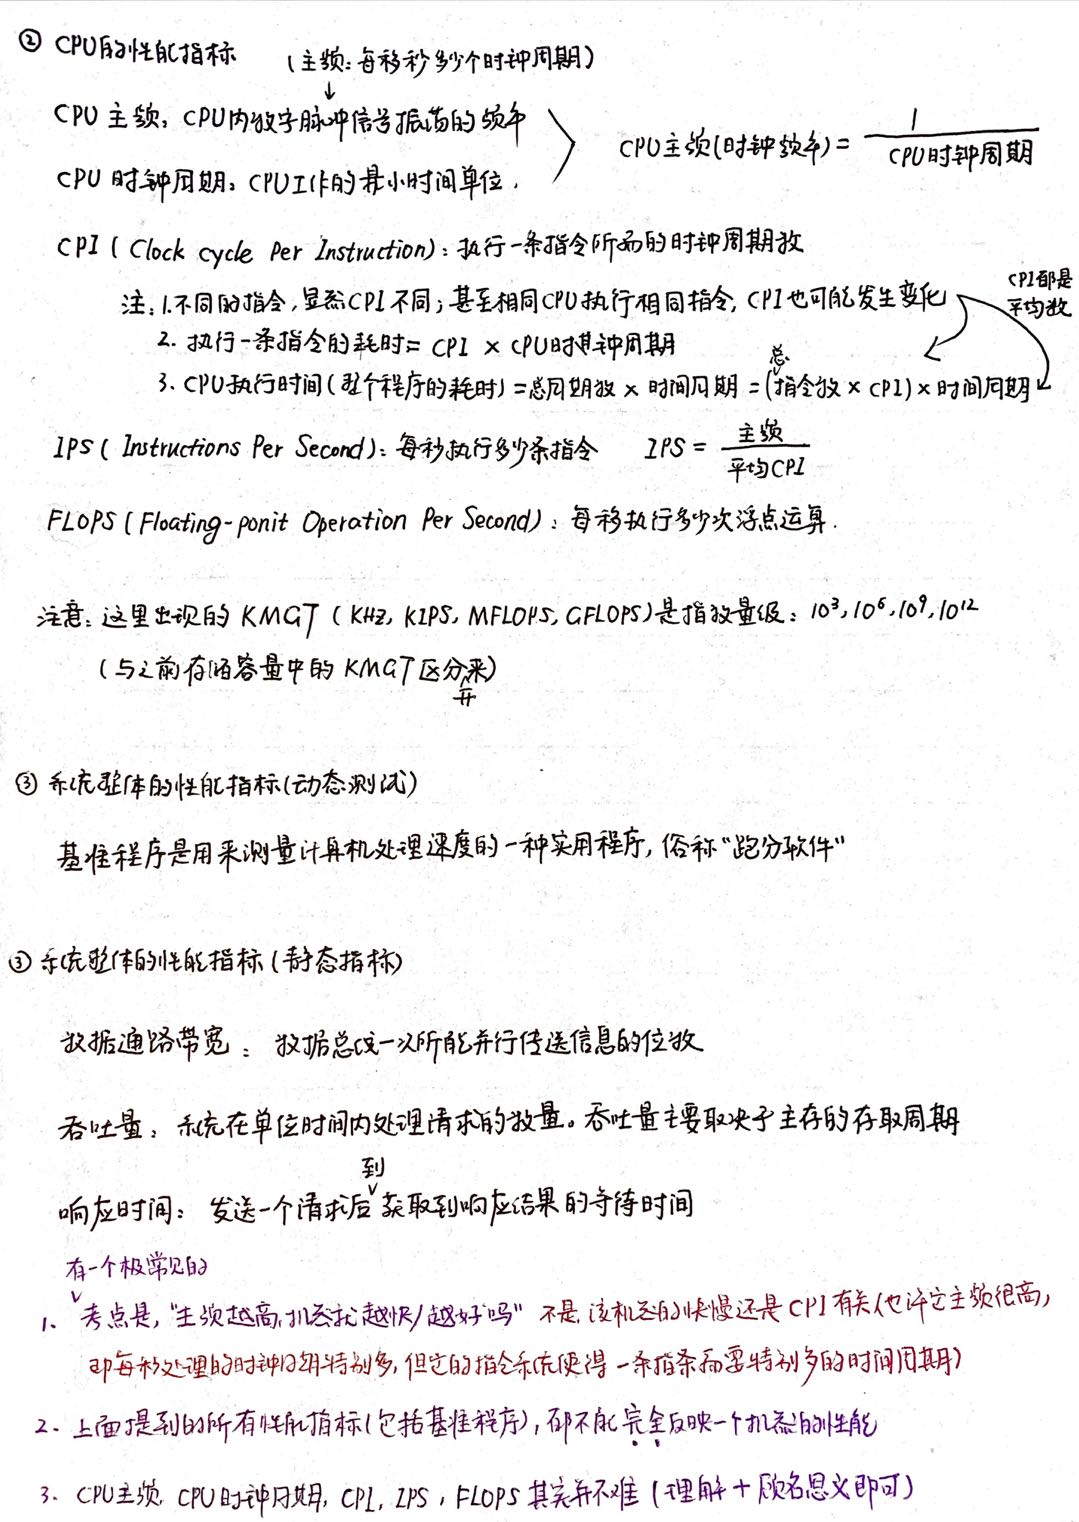 ② CPU的性能指标 (主频：每移秒多少个时钟周期)
CPU 主频：CPU内数字脉冲信号振荡的频率
CPU主频(时钟频率) = 1 / CPU时钟周期
CPU 时钟周期：CPU工作的最小时间单位.
CPI ( Clock cycle Per Instruction)：执行一条指令所需的时钟周期数
注：1.不同的指令，显然CPI不同；甚至相同CPU执行相同指令, CPI也可能发生变化
CPI都是
平均数
2. 执行一条指令的耗时= CPI × CPU时钟周期
3. CPU执行时间(整个程序的耗时) = 总周期数 × 时间周期 = (总指令数 × CPI) × 时间周期
IPS ( Instructions Per Second)：每秒执行多少条指令 IPS = 主频 / 平均CPI
FLOPS (Floating-ponit Operation Per Second)：每移执行多少次浮点运算.
注意：这里出现的 KMGT ( KHz, KIPS, MFLOPS, GFLOPS)是指数量级：10³, 10⁶, 10⁹, 10¹²
(与之前存储容量中的 KMGT区分开来)
③ 系统整体的性能指标(动态测试)
基准程序是用来测量计算机处理速度的一种实用程序, 俗称“跑分软件”
③ 系统整体的性能指标(静态指标)
数据通路带宽：数据总线一次所能并行传送信息的位数
吞吐量：系统在单位时间内处理请求的数量。吞吐量主要取决于主存的存取周期
响应时间：发送一个请求后到获取到响应结果的等待时间
有一个极常见的
1、考点是，“主频越高,机器就越快/越好吗” 不是,该机器的快慢还是CPI有关(也许它主频很高,
即每秒处理的时钟周期特别多,但它的指令系统使得一条指条需要特别多的时间周期)
2. 上面提到的所有性能指标(包括基准程序), 都不能完全反映一个机器的性能
3. CPU主频, CPU时钟周期, CPI, IPS, FLOPS 其实并不难 (理解 + 顾名思义即可)